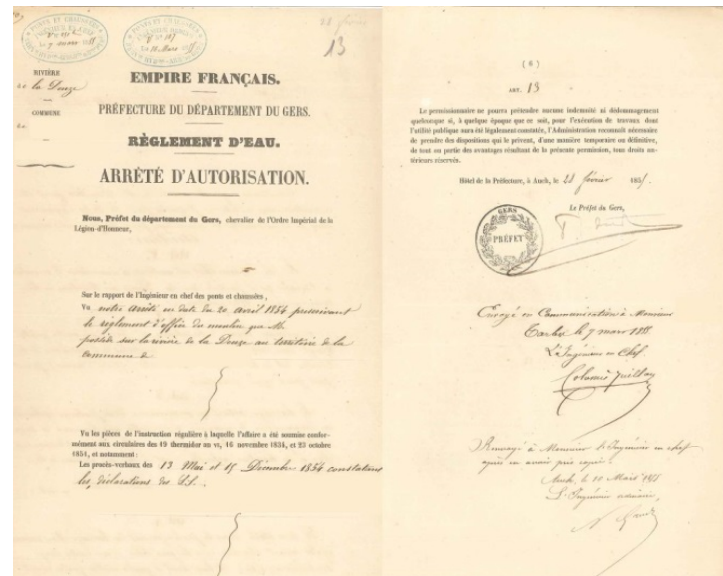 28 février
13
PONTS ET CHAUSSÉES
7 mars 1855
PONTS ET CHAUSSÉES
Le 10 Mars 1855
RIVIÈRE
de la Douze
COMMUNE
de
EMPIRE FRANÇAIS.
PRÉFECTURE DU DÉPARTEMENT DU GERS.
RÈGLEMENT D'EAU.
ARRÊTÉ D'AUTORISATION.
Nous, Préfet du département du Gers, chevalier de l'Ordre Impérial de la
Légion-d'Honneur,
Sur le rapport de l'Ingénieur en chef des ponts et chaussées,
Vu notre arrêté en date du 20 avril 1854 prescrivant
le règlement d'office du moulin que M.
possède sur la rivière de la Douze au territoire de la
commune de
Vu les pièces de l'instruction régulière à laquelle l'affaire a été soumise confor-
mément aux circulaires des 19 thermidor an VI, 16 novembre 1834, et 23 octobre
1851, et notamment :
Les procès-verbaux des 13 Mai et 15 Décembre 1854 constatant
les déclarations des
( 6 )
ART. 13
Le permissionnaire ne pourra prétendre aucune indemnité ni dédommagement
quelconque si, à quelque époque que ce soit, pour l'exécution de travaux dont
l'utilité publique aura été légalement constatée, l'Administration reconnaît nécessaire
de prendre des dispositions qui le privent, d'une manière temporaire ou définitive,
de tout ou partie des avantages résultant de la présente permission, tous droits an-
térieurs réservés.
Hôtel de la Préfecture, à Auch, le 28 février 1855.
Le Préfet du Gers,
GERS
PRÉFET
Envoyé en Communication à Monsieur
Tarbes le 7 mars 1855
L'Ingénieur en Chef
Colomès Juillan
Renvoyé à Monsieur l'Ingénieur en chef
après en avoir pris copie.
Auch, le 10 Mars 1855
L'Ingénieur